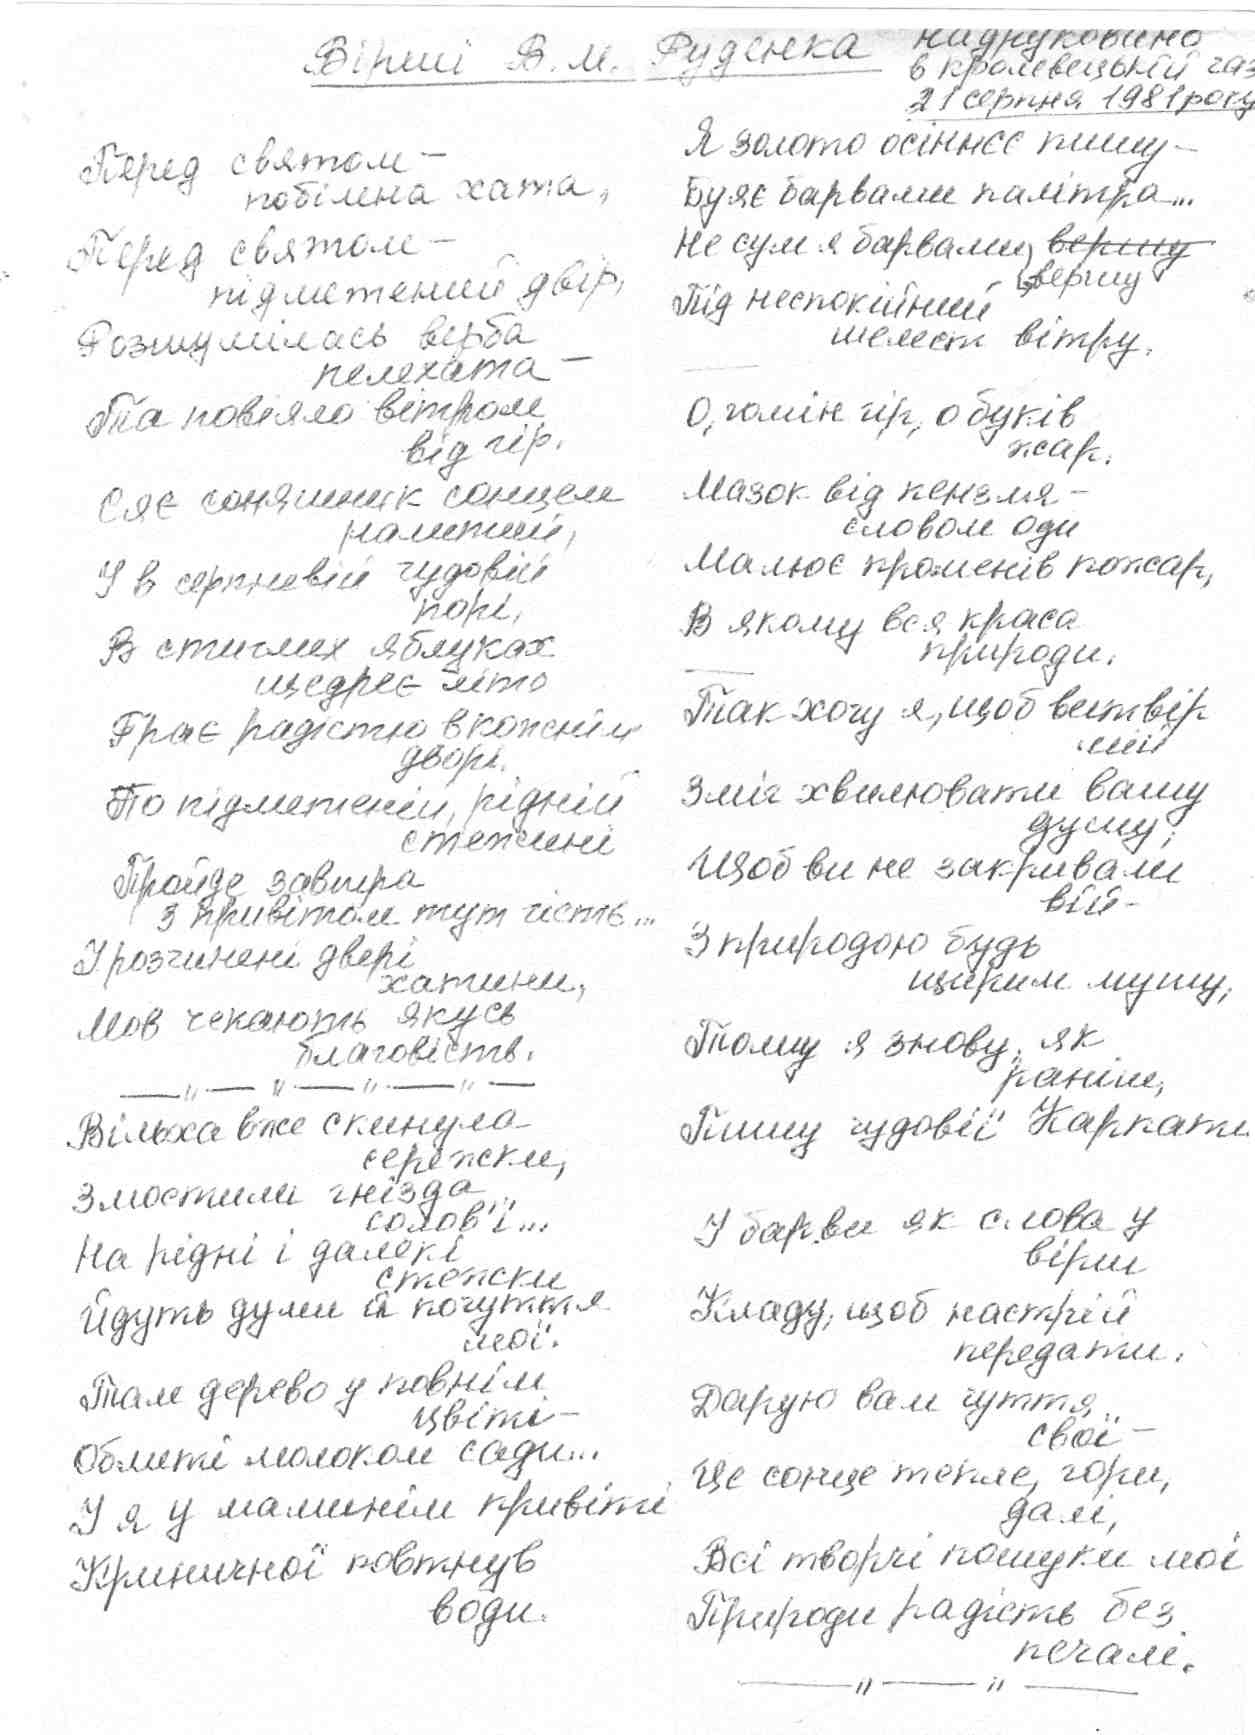 Вірші В. М. Руденка
надруковано
в кролевецькій газ
21 серпня 1981 року
Перед святом –
побілена хата,
Перед святом –
підметений двір,
Розшумілась верба
пелехата –
Та повіяло вітром
від гір.
Сяє соняшник сонцем
налитий,
І в серпневій чудовій
порі,
В стиглих яблуках
щедреє літо
Грає радістю в кожнім
дворі.
По підметеній, рідній
стежині
Пройде завтра
з привітом тут гість...
І розчинені двері
хатини,
Мов чекають якусь
благовість.
— " — " — " — " —
Вільха вже скинула
сережки,
Змостили гнізда
солов'ї...
На рідні і далекі
стежки
Йдуть думи й почуття
мої.
Там дерево у повнім
цвіті –
Облиті молоком сади...
І я у мамині́м привіті
Криничної ковтнув
води.
Я золото осіннєє пишу –
Буяє барвами палітра...
Не сум я барвами вершу
вершу
Під неспокійний
шелест вітру.
О, гомін гір, о буків
жар.
Мазок від пензля –
словом оди
Малює променів пожар,
В якому вся краса
природи.
Так хочу я, щоб витвір
мій
Зміг хвилювати вашу
душу,
Щоб ви не закривали
вій –
З природою будь
щирим мушу,
Тому я знову, як
раніш,
Пишу чудовії Карпати
І барви як слова у
вірш
Кладу, щоб настрій
передати.
Дарую вам чуття
свої –
Це сонце тепле, гори,
далі,
Всі творчі пошуки мої
Природи радість без
печалі.
— " — " —